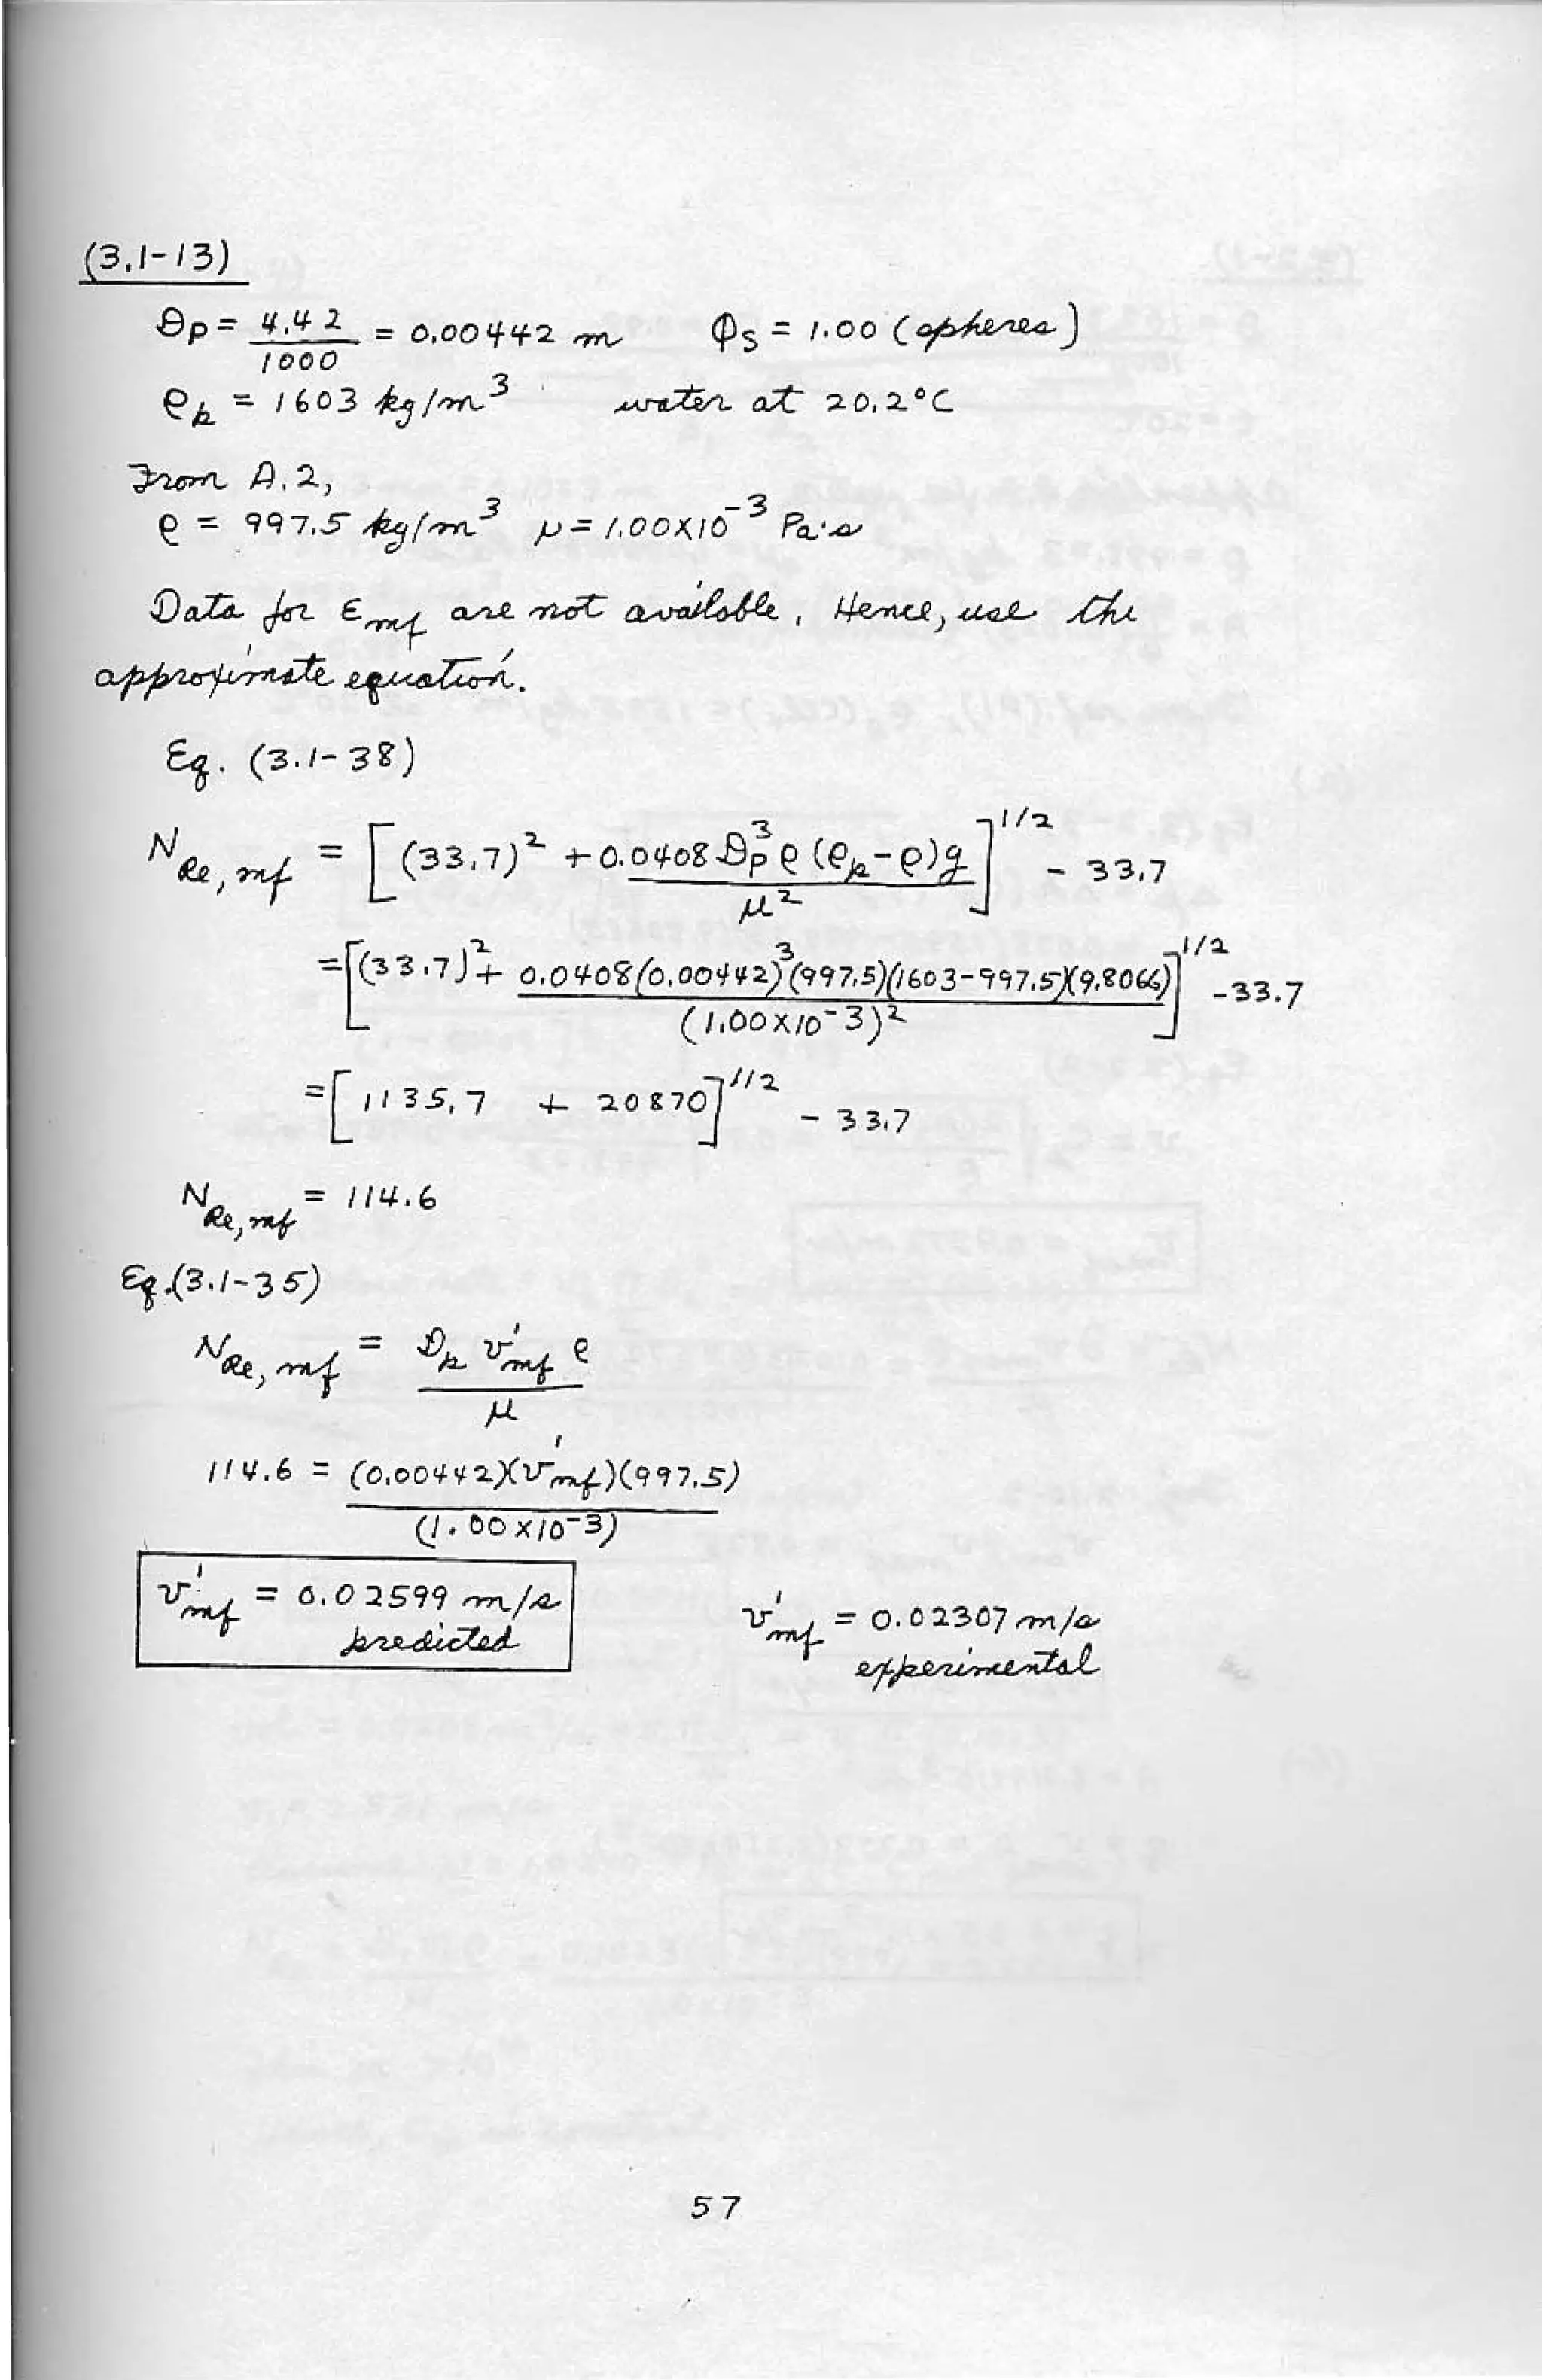 (3.1-13)
Dp = 4.42/1000 = 0.00442 m   Φs = 1.00 (spheres)
ρp = 1603 kg/m³   water at 20.2°C
From A.2,
ρ = 997.5 kg/m³   μ = 1.00×10⁻³ Pa·s
Data for εmf are not available, Hence, use the
approximate equation.
Eq. (3.1-38)
N Re,mf = [(33.7)² + 0.0408 Dp³ ρ (ρp-ρ)g / μ²]^1/2 - 33.7
= [(33.7)² + 0.0408(0.00442)³(997.5)(1603-997.5)(9.8066) / (1.00×10⁻³)²]^1/2 - 33.7
= [1135.7 + 20870]^1/2 - 33.7
N Re,mf = 114.6
Eq.(3.1-35)
N Re,mf = Dp v'mf ρ / μ
114.6 = (0.00442)(v'mf)(997.5) / (1.00×10⁻³)
v'mf = 0.02599 m/s
predicted
v'mf = 0.02307 m/s
experimental
57